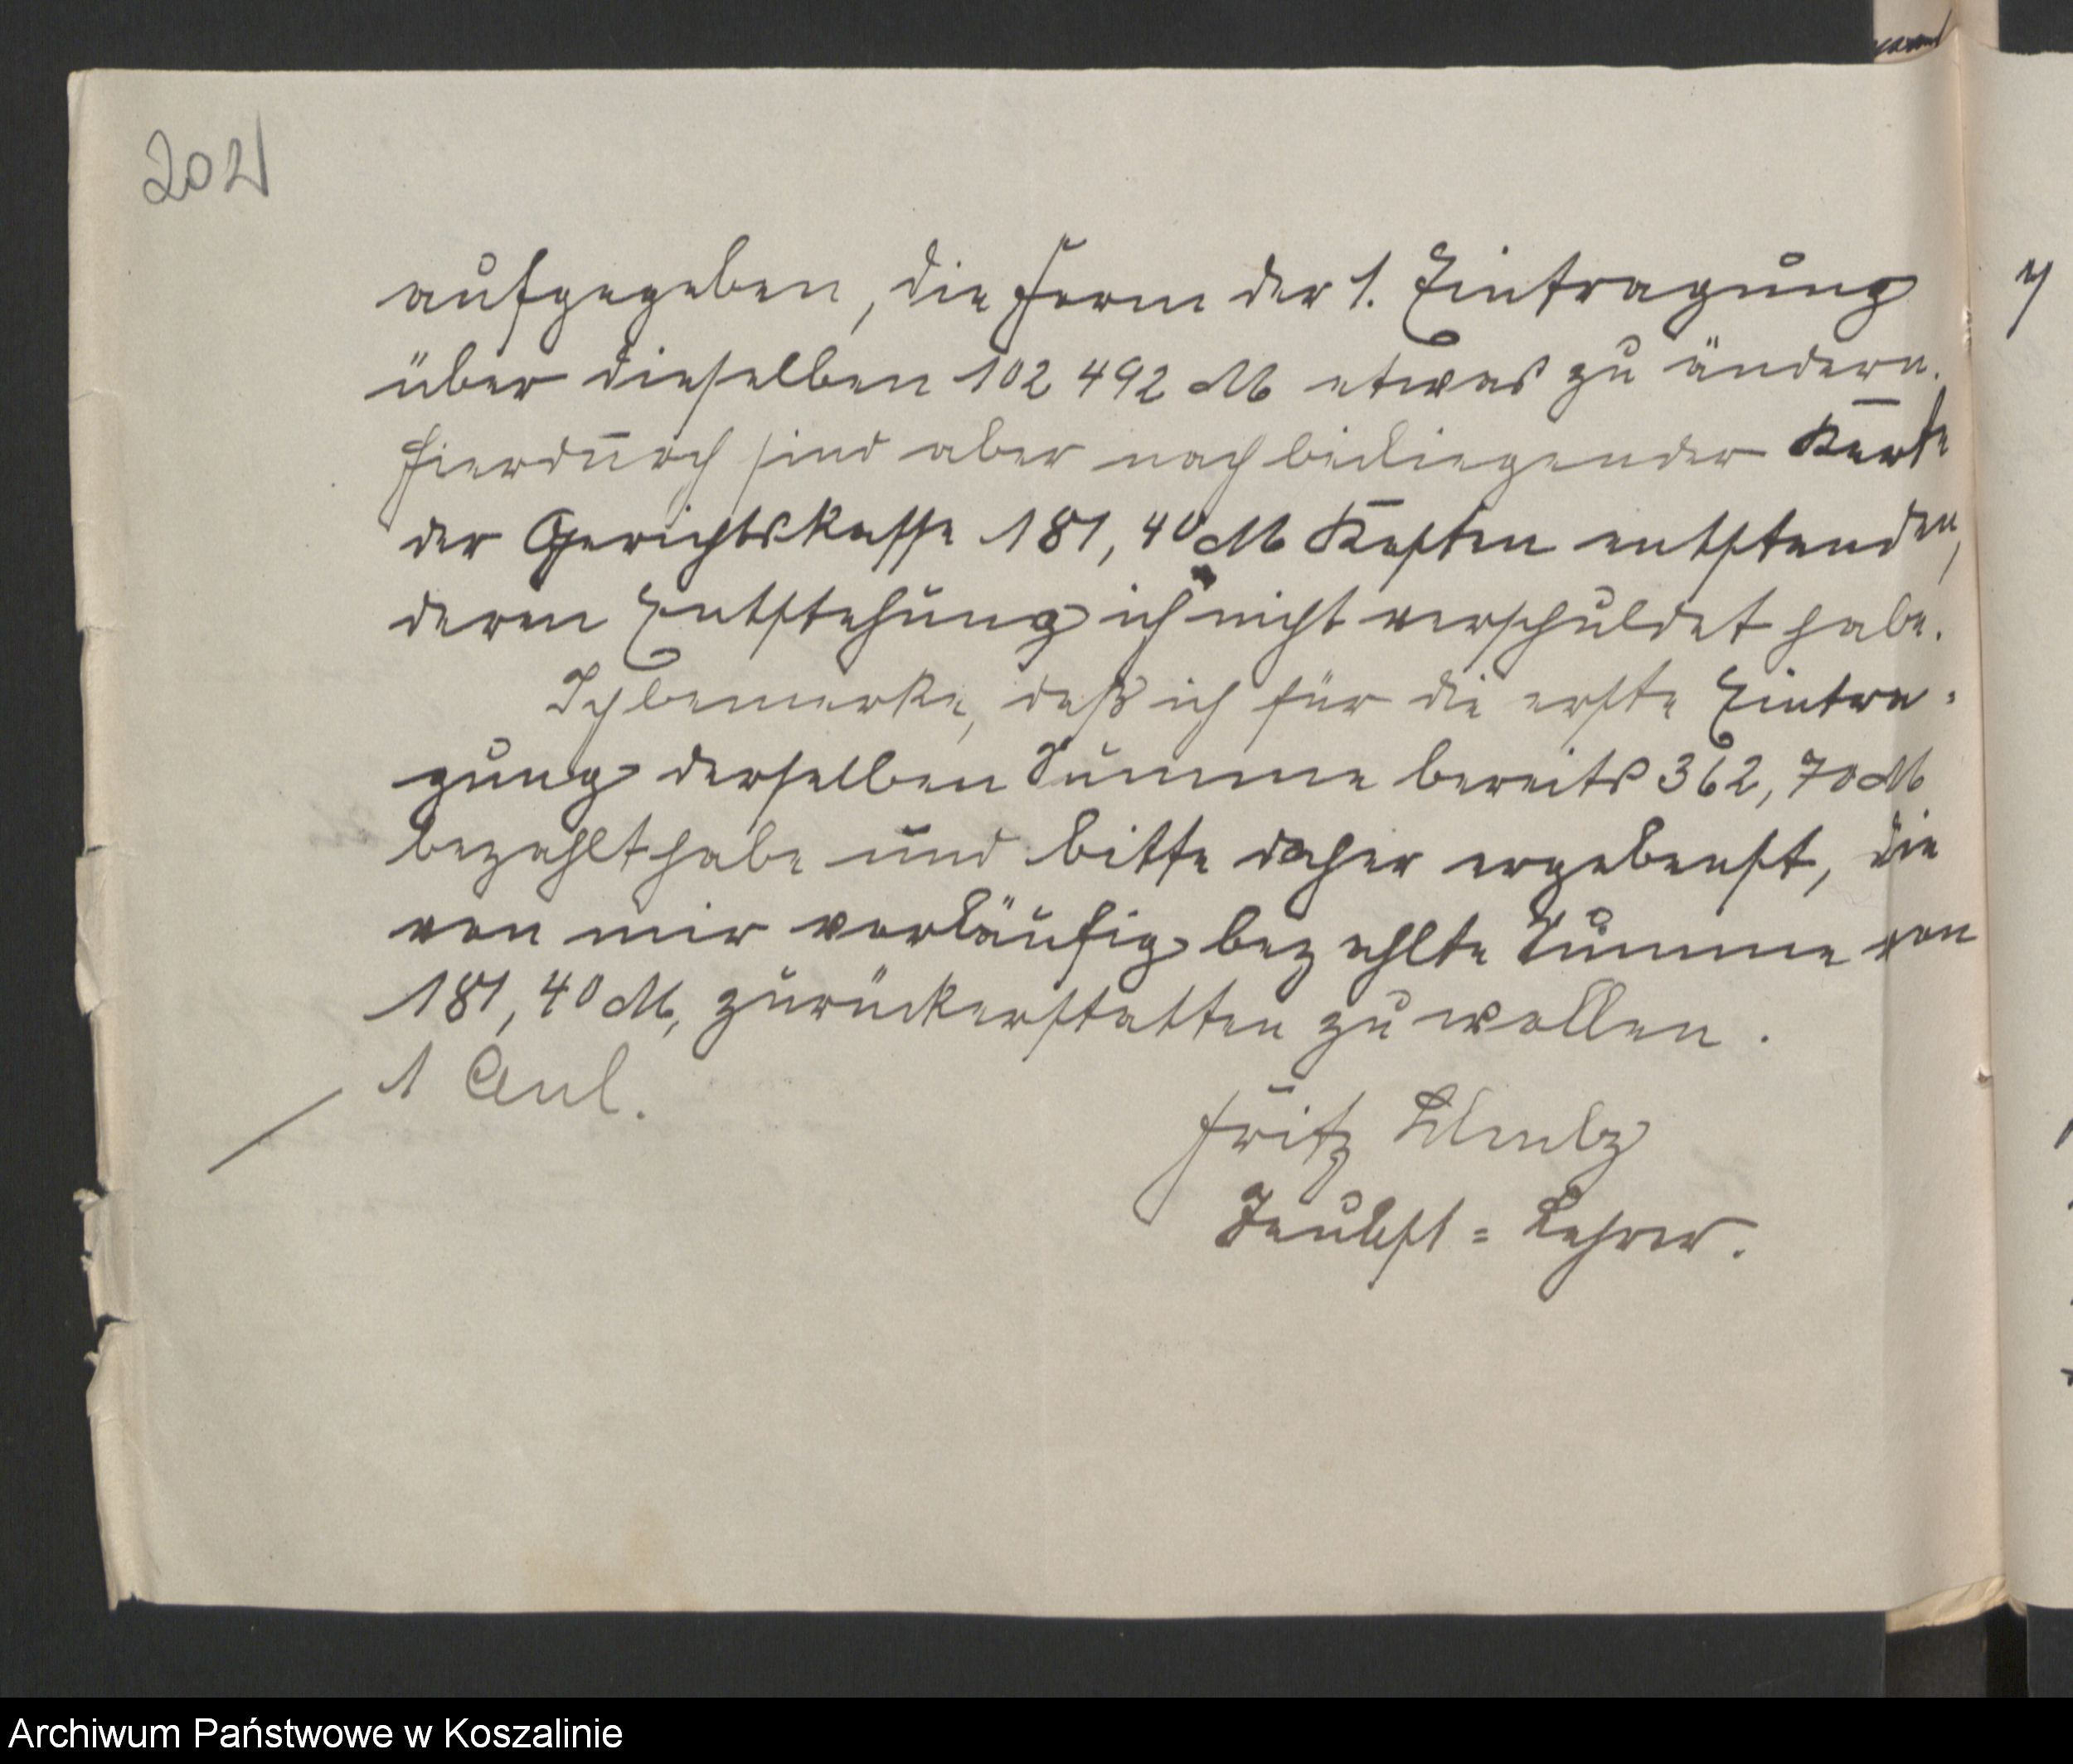 202
aufgegeben, die Form der 1. Eintragung
über dieselben 102 492 M etwas zu ändern.
Hierdurch sind aber nach beiliegender Karte
der Gerichtskasse 181,40 M Kosten entstanden,
deren Entstehung ich nicht verschuldet habe.
Ich bemerke, daß ich für die erste Eintra-
gung derselben Summe bereits 362,70 M
bezahlt habe und bitte daher ergebenst, die
von mir vorläufig bezahlte Summe von
181,40 M, zurückerstatten zu wollen.
1 Anl.
Fritz Schulz
Taubst=Lehrer.
Archiwum Państwowe w Koszalinie